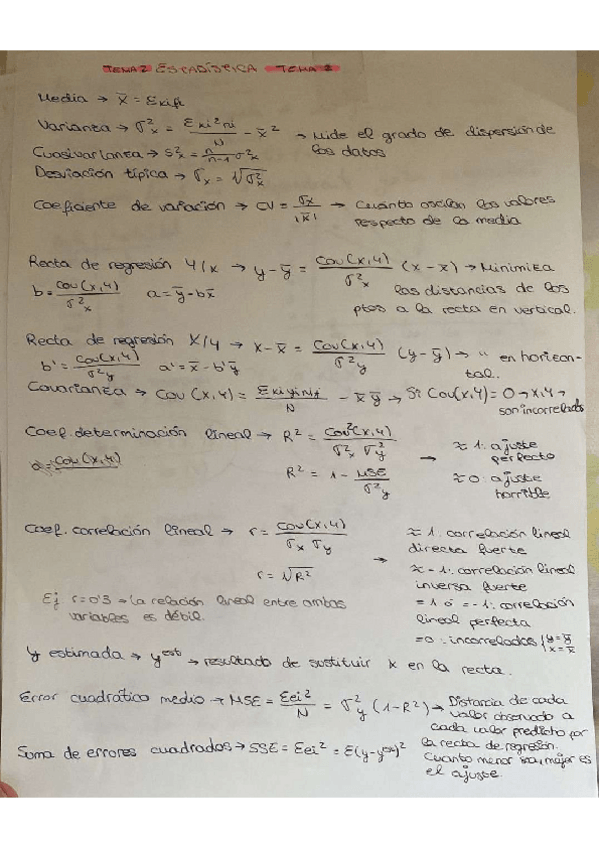 TEMA 2 ESTADÍSTICA TEMA 2
Media → x̄ = Σxifi
Varianza → σ²x = Σxi²ni / N - x̄² → Mide el grado de dispersión de
Cuasivarianza → S²x = n/n-1 σ²x los datos
Desviación típica → σx = √σ²x
Coeficiente de variación → CV = σx / |x̄| → Cuánto oscilan los valores
respecto de la media
Recta de regresión Y/X → y - ȳ = Cov(X,Y) / σ²x (x - x̄) → Minimiza
b = Cov(X,Y) / σ²x a = ȳ - bx̄ las distancias de los
ptos a la recta en vertical.
Recta de regresión X/Y → x - x̄ = Cov(X,Y) / σ²y (y - ȳ) → " en horizon-
b' = Cov(X,Y) / σ²y a' = x̄ - b'ȳ tal.
Covarianza → Cov(X,Y) = Σxiyini / N - x̄ ȳ → Si Cov(X,Y) = 0 → X,Y →
son incorrelados
Coef. determinación lineal → R² = Cov²(X,Y) / σ²x σ²y ≈ 1: ajuste
a = Cov(X,Y) → perfecto
R² = 1 - MSE / σ²y ≈ 0: ajuste
horrible
Coef. correlación lineal → r = Cov(X,Y) / σx σy ≈ 1: correlación lineal
directa fuerte
r = √R² → ≈ -1: correlación lineal
inversa fuerte
Ej r = 0'3 → la relación lineal entre ambas = 1 ó = -1: correlación
variables es débil. lineal perfecta
= 0: incorrelados { y = ȳ x = x̄
Y estimada → y^est → resultado de sustituir X en la recta.
Error cuadrático medio → MSE = Σei² / N = σ²y (1 - R²) → Distancia de cada
valor observado a
cada valor predicho por
Suma de errores cuadrados → SSE = Σei² = Σ(y - y^est)² la recta de regresión.
Cuanto menor sea, mejor es
el ajuste